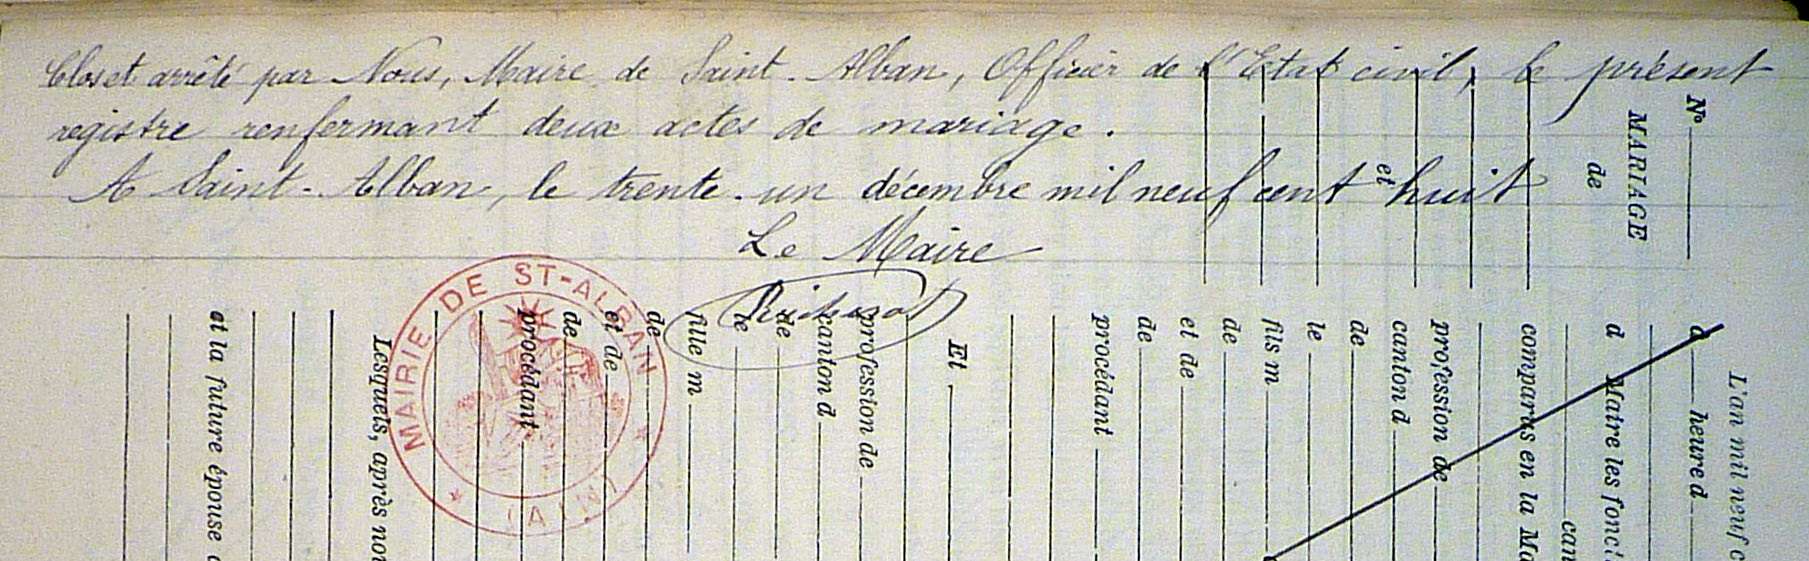 Clos et arrêté par Nous, Maire de Saint-Alban, Officier de l'Etat civil, le présent
registre renfermant deux actes de mariage.
A Saint-Alban, le trente-un décembre mil neuf cent huit
Le Maire
MAIRIE DE ST-ALBAN
* (AIN) *
L'an mil neuf c
d heure d
d Maire les fonct
can
comparus en la Ma
profession de
canton d
de
le
fils m
de
et de
de
procédant
Et
profession de
canton d
de
le
fille m
de
et de
de
procédant
Lesquels, après nou
et la future épouse d
N°
MARIAGE
de
et